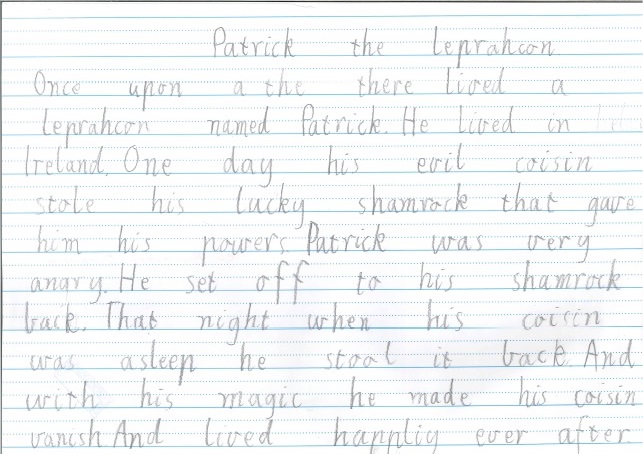 Patrick the leprahcon
Once upon a the there lived a
leprahcon named Patrick. He lived in
Ireland. One day his evil coisin
stole his lucky shamrock that gave
him his powers. Patrick was very
angry. He set off to his shamrock
back. That night when his coisin
was asleep he stool it back. And
with his magic he made his coisin
vanish And lived happliy ever after